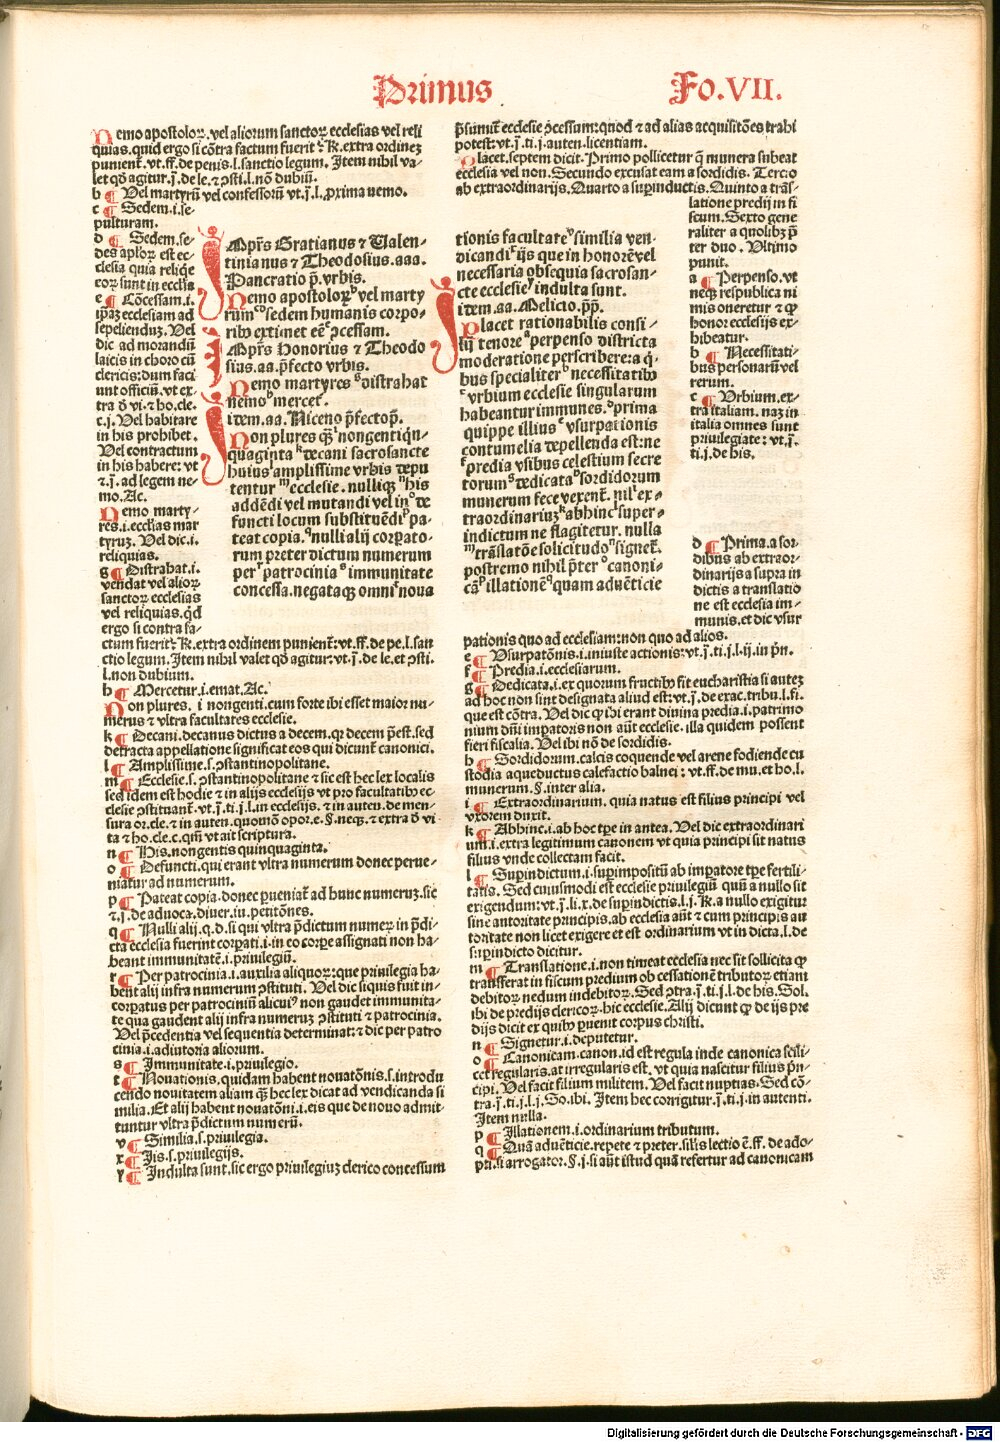 Primus
Fo.VII.
Nemo apostoloꝝ. vel aliorum sanctoꝝ ecclesias vel reli
quias. quid ergo si cõtra factum fuerit: ℟. extra ordineʒ
punient᷑. vt. ff. de penis. l. sanctio legum. Item nihil va-
let qđ agitur. j. de le. ⁊ ꝯsti. l. nõ dubiũ.
b ¶ Vel martyrũ vel confessorũ vt. j. l. ꝓxima nemo.
c ¶ Sedem. i. se-
pulturam.
d ¶ Sedem. se-
des apl'oꝝ est ec-
clesia quia reliqͥe
eoꝝ sunt in ecclia
e ¶ Cõcessam. i.
ip̃aʒ ecclesiam ad
sepelienduʒ. Vel
dic ad morandũ
laicis in choro cũ
clericis: dum faci
unt officiũ. vt ex-
tra đ vi. ⁊ ho. cle.
c. j. Vel habitare
in his prohibet.
Vel contractum
in his habere: vt
⁊. j. ad legem ne-
mo. Ac.
Nemo marty-
res. i. ecclias mar
tyruʒ. Vel dic. i.
reliquias.
g ¶ Distrahat. i.
vendat vel alioꝝ
sanctoꝝ ecclesias
vel reliquias. qđ
ergo si contra fa-
ctum fuerit: ℟. extra ordinem punient᷑: vt. ff. de pe. l. san
ctio legum. Item nihil valet qđ agitur: vt. j. de le. et ꝯsti.
l. non dubium.
h ¶ Mercetur. i. emat. Ac.
Non plures. i nongenti. cum forte ibi esset maior nu-
merus ⁊ vltra facultates ecclesie.
k ¶ Decani. decanus dictus a decem. qꝛ decem p̃est. sed
detracta appellatione significat eos qui dicunt᷑ canonici.
l ¶ Amplissime. s. ꝯstantinopolitane.
m ¶ Ecclesie. s. ꝯstantinopolitane ⁊ sic est hec lex localis
sed idem est hodie ⁊ in alijs ecclesijs vt pro facultatibꝰ ec-
clesie ꝯstituant᷑. vt. j. ti. j. l. in ecclesijs. ⁊ in auten. de men-
sura or. cle. ⁊ in auten. quomõ opor. e. §. neqʒ. ⁊ extra đ vi
ta ⁊ ho. cle. c. qm̃ vt ait scriptura.
n ¶ His. nongentis quinquaginta.
o ¶ Defuncti. qui erant vltra numerum donec perue-
niatur ad numerum.
p ¶ Pateat copia. donec ꝑueniat᷑ ad hunc numeruʒ. sic
⁊. j. de aduoca. diuer. iu. petitõnes.
q ¶ Nulli alij. q. d. si qui vltra p̃dictum numeꝝ in p̃di-
cta ecclesia fuerint corꝑati. i. in eo corꝑe assignati non ha-
beant immunitatẽ. i. priuilegiũ.
r ¶ Per patrocinia. i. auxilia aliquoꝝ: que priuilegia ha-
bent alij infra numerum ꝯstituti. Vel dic siquis fuit in-
corꝑatus per patrociniũ alicuiꝰ non gaudet immunita-
te qua gaudent alij infra numeruʒ ꝯstituti ⁊ patrocinia.
Vel p̃cedentia vel sequentia determinat: ⁊ dic per patro
cinia. i. adiutoria aliorum.
s ¶ Immunitate. i. priuilegio.
t ¶ Nouationis. quidam habent nouatõnis. s. introdu
cendo nouitatem aliam qʒ hec lex dicat ad vendicanda si
milia. Et alij habent nouatõni. i. eis que de nouo admit-
tuntur vltra p̃dictum numerũ.
v ¶ Similia. s. priuilegia.
x ¶ Jis. s. priuilegijs.
y ¶ Indulta sunt. sic ergo priuilegiuʒ clerico concessum
Imp̃rs Gratianus ⁊ Valen-
tinianus ⁊ Theodosius. aaa.
Pancratio p̃. vrbis.
Nemo apostoloꝝ vel marty
rum sedem humanis corpo-
ribꝰ extimet eẽ ꝯcessam.
Imp̃rs Honorius ⁊ Theodo
sius. aa. p̃fecto vrbis.
Nemo martyres distrahat
nemo mercet᷑.
item. aa. Niceno p̃fecto p̃.
Non plures qʒ nongenti qͥn-
quaginta decani sacrosancte
huius amplissime vrbis depu
tentur ecclesie. nulliqʒ his
addẽdi vel mutandi vel in de
functi locum substituẽdi pa-
teat copia. nulli alij corꝑato-
rum preter dictum numerum
per patrocinia immunitate
concessa. negataqʒ omni noua
tionis facultate similia ven-
dicandi ijs que in honorẽ vel
necessaria obsequia sacrosan-
cte ecclesie indulta sunt.
Item. aa. Melicio. p̃p̃.
Placet rationabilis consi-
lij tenore perpenso districta
moderatione perscribere: a qͥ-
bus specialiter necessitatibꝰ
vrbium ecclesie singularum
habeantur immunes. prima
quippe illius vsurpationis
contumelia depellenda est: ne
predia vsibus celestium secre
torum dedicata sordidorum
munerum fece vexent᷑. nil ex-
traordinariuʒ abhinc super-
indictum ne flagitetur. nulla
trãslatõne solicitudo signet᷑.
postremo nihil p̃ter canoni-
cã illationẽ quam aduẽticie
p̃sumit᷑ ecclesie ꝯcessum: quod ⁊ ad alias acquisitões trahi
potest: vt. j. ti. j. auten. licentiam.
Placet. septem dicit. Primo pollicetur q̃ munera subeat
ecclesia vel non. Secundo excusat eam a sordidis. Tercio
ab extraordinarijs. Quarto a suꝑinductis. Quinto a trãs-
latione predij in fi
scum. Sexto gene
raliter a quolibʒ p̃
ter duo. Vltimo
punit.
a ¶ Perpenso. vt
neqʒ respublica ni
mis oneretur ⁊ ꝙ
honor ecclesijs ex-
hibeatur.
b ¶ Necessitati-
bus personarũ vel
rerum.
c ¶ Vrbium. ex-
tra italiam. naʒ in
italia omnes sunt
priuilegiate: vt. j.
ti. j. de his.
d ¶ Prima. a sor-
dibus ab extraor-
dinarijs a supra in
dictis a translatio
ne est ecclesia im-
munis. et dic vsur
pationis quo ad ecclesiam: non quo ad alios.
e ¶ Vsurpatõnis. i. iniuste actionis: vt. j. ti. j. l. ij. in prin.
f ¶ Predia. i. ecclesiarum.
g ¶ Dedicata. i. ex quorum fructibꝰ fit eucharistia si auteʒ
ad hoc non sint designata aliud est: vt. j. de exac. tribu. l. fi.
que est cõtra. Vel dic ꝙ ibi erant diuina predia. i. patrimo
nium dñi imperatoris non aũt ecclesie. illa quidem possent
fieri fiscalia. Vel ibi nõ de sordidis.
h ¶ Sordidorum. calcis coquende vel arene fodiende cu
stodia aqueductus calefactio balnei: vt. ff. de mu. et ho. l.
munerum. §. inter alia.
i ¶ Extraordinarium. quia natus est filius principi vel
vxorem duxit.
k ¶ Abhinc. i. ab hoc tꝑe in antea. Vel dic extraordinari
um. i. extra legitimum canonem vt quia principi sit natus
filius vnde collectam facit.
l ¶ Suꝑindictum. i. suꝑimpositũ ab imꝑatore tꝑe fertili-
tatis. Sed cuiusmodi est ecclesie priuilegiũ quũ a nullo sit
exigendum: vt. j. li. x. de suꝑindictis. l. j. ℟. a nullo exigitur
sine autoritate principis. ab ecclesia aũt ⁊ cum principis au
toritate non licet exigere et est ordinarium vt in dicta. l. de
suꝑindicto dicitur.
m ¶ Translatione. i. non timeat ecclesia nec sit sollicita ꝙ
transferat in fiscum predium ob cessationẽ tributoꝝ etiam
debitoꝝ nedum indebitoꝝ. Sed ꝯtra. j. ti. j. l. de his. Sol.
ibi de predijs clericoꝝ. hic ecclesie. Alij dicunt ꝙ de ijs pre
dijs dicit ex quibꝰ ꝓuenit corpus christi.
n ¶ Signetur. i. deputetur.
o ¶ Canonicam. canon. id est regula inde canonica scili-
cet regularis. at irregularis est. vt quia nascitur filius prin-
cipi. Vel facit filium militem. Vel facit nuptias. Sed cõ-
tra. j. ti. j. l. j. So. ibi. Item hec corrigitur. j. ti. j. in autenti.
Item nulla.
p ¶ Illationem. i. ordinarium tributum.
q ¶ Quã aduẽticie. repete ⁊ preter. silis lectio ẽ. ff. de ado-
pti. si arrogator. §. j. si aũt istud quã refertur ad canonicam
Digitalisierung gefördert durch die Deutsche Forschungsgemeinschaft - DFG